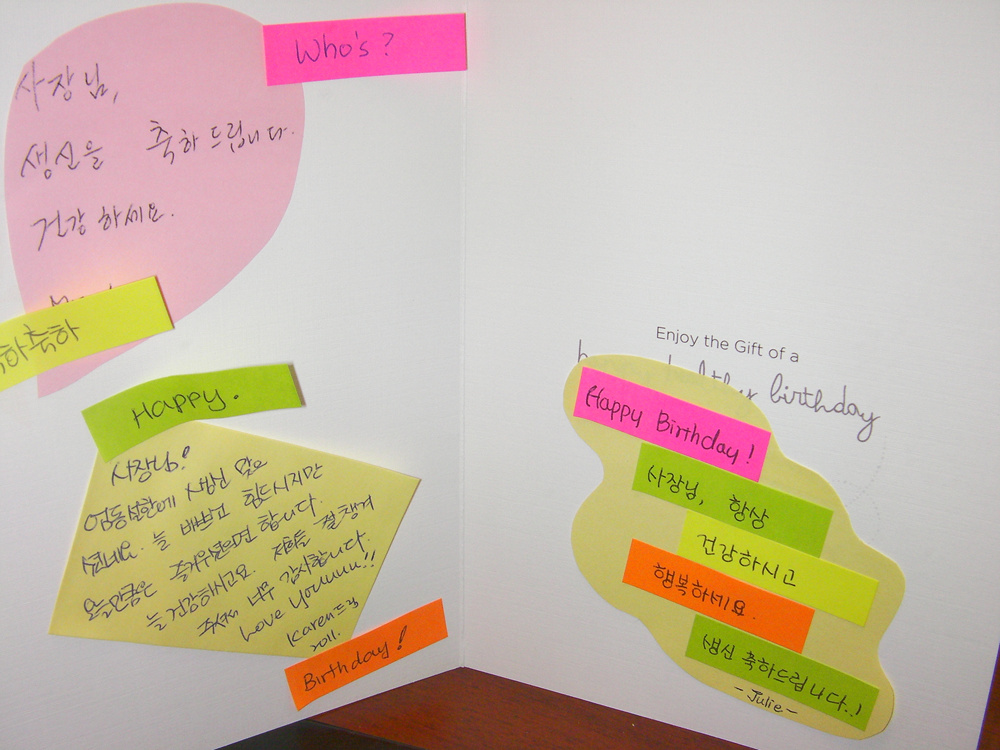 Who's?
사장님,
생신을 축하드립니다.
건강하세요.
하축하
Happy.
사장님!
엄동설한에 생신 맞으
셨네요. 늘 바쁘고 힘드시지만
오늘만큼은 즐거우셨으면 합니다.
늘 건강하시고요. 저희들 잘 챙겨
주셔서 너무 감사합니다.
Love youuuu!!
Karen드림
2011.
Birthday!
Enjoy the Gift of a
birthday
Happy Birthday!
사장님, 항상
건강하시고
행복하세요.
생신 축하드립니다..!
- Julie -